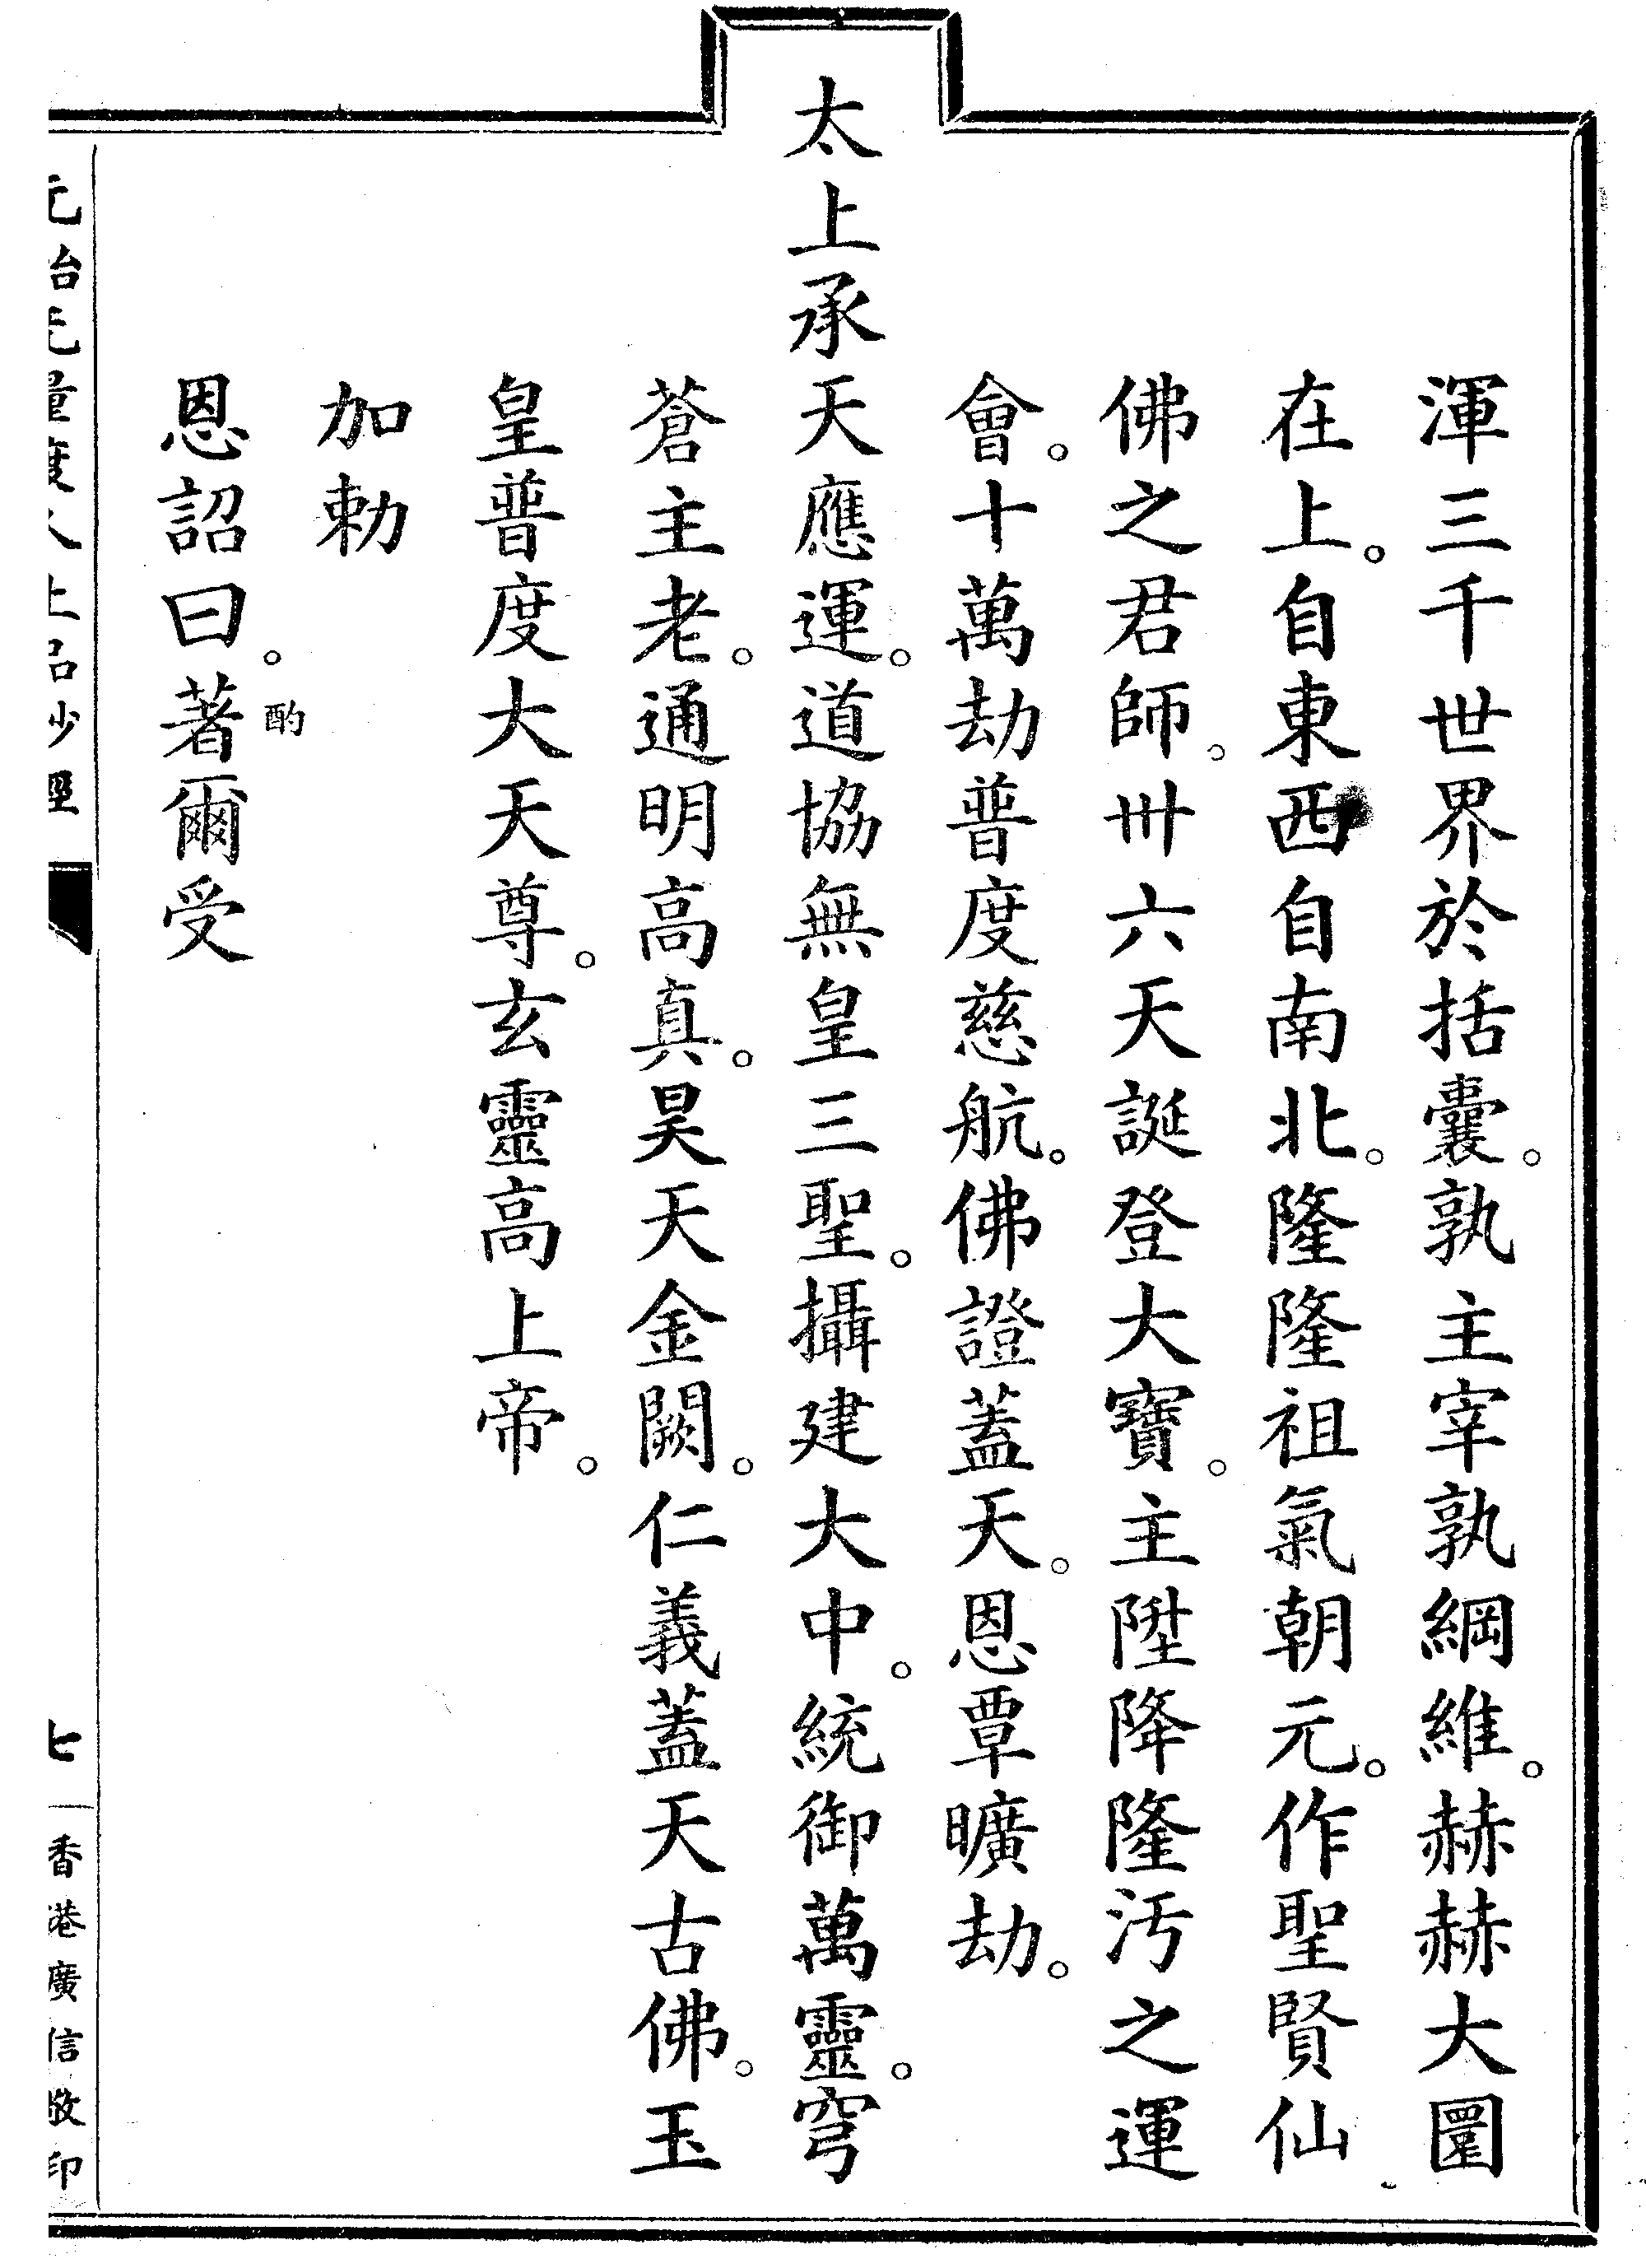 渾三千世界於括囊。孰主宰孰綱維。赫赫大圜
在上。自東西自南北。隆隆祖氣朝元。作聖賢仙
佛之君師。卅六天誕登大寶。主陞降隆汚之運
會。十萬劫普度慈航。佛證蓋天。恩覃曠劫。
太上承天應運。道協無皇三聖。攝建大中。統御萬靈。穹
蒼主老。通明高真。昊天金闕。仁義蓋天古佛。玉
皇普度大天尊。玄靈高上帝。
加勅
恩詔曰。著爾受
酌
元始无量度人上品妙經
七
香港廣信敬印